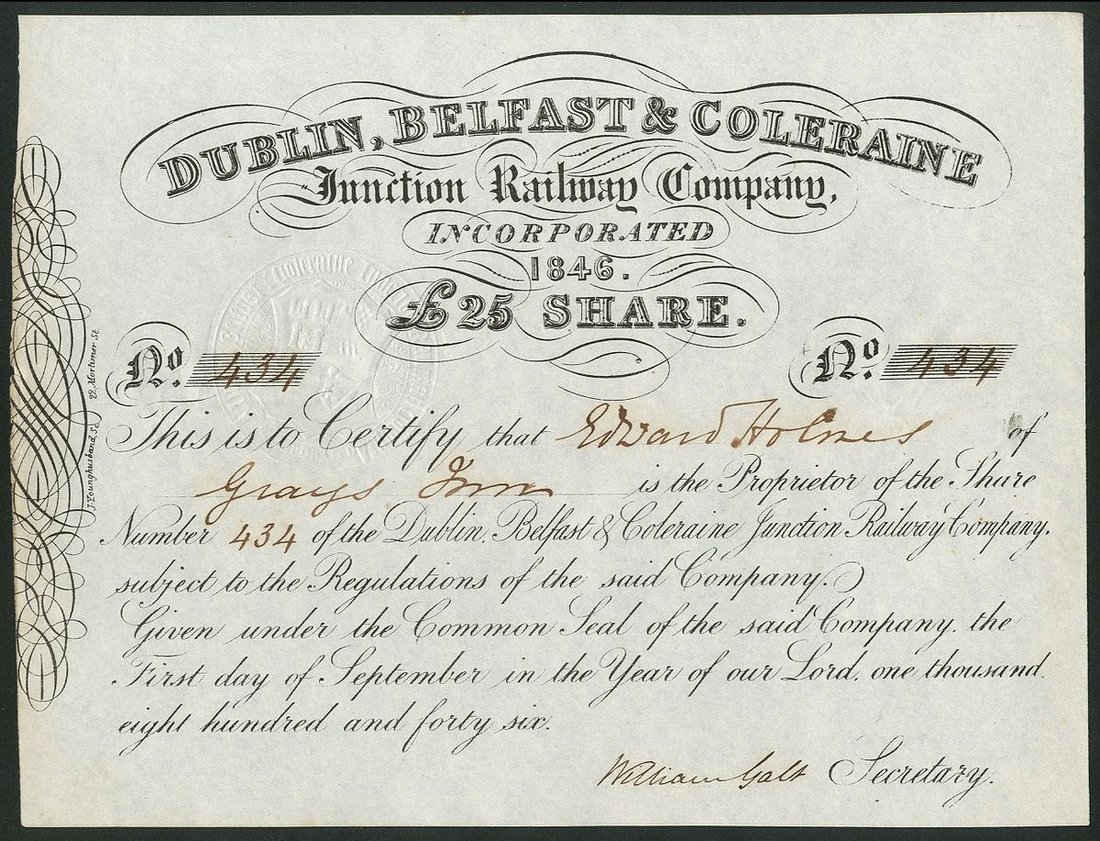 DUBLIN, BELFAST & COLERAINE
Junction Railway Company,
INCORPORATED
1846.
£25 SHARE.
No. 434 No. 434
This is to Certify that Edward Holmes of
Grays Inn is the Proprietor of the Share
Number 434 of the Dublin, Belfast & Coleraine Junction Railway Company,
subject to the Regulations of the said Company.
Given under the Common Seal of the said Company, the
First day of September in the Year of our Lord, one thousand
eight hundred and forty six.
William Galt Secretary.
J. Younghusband, Sc. 22, Mortimer St.